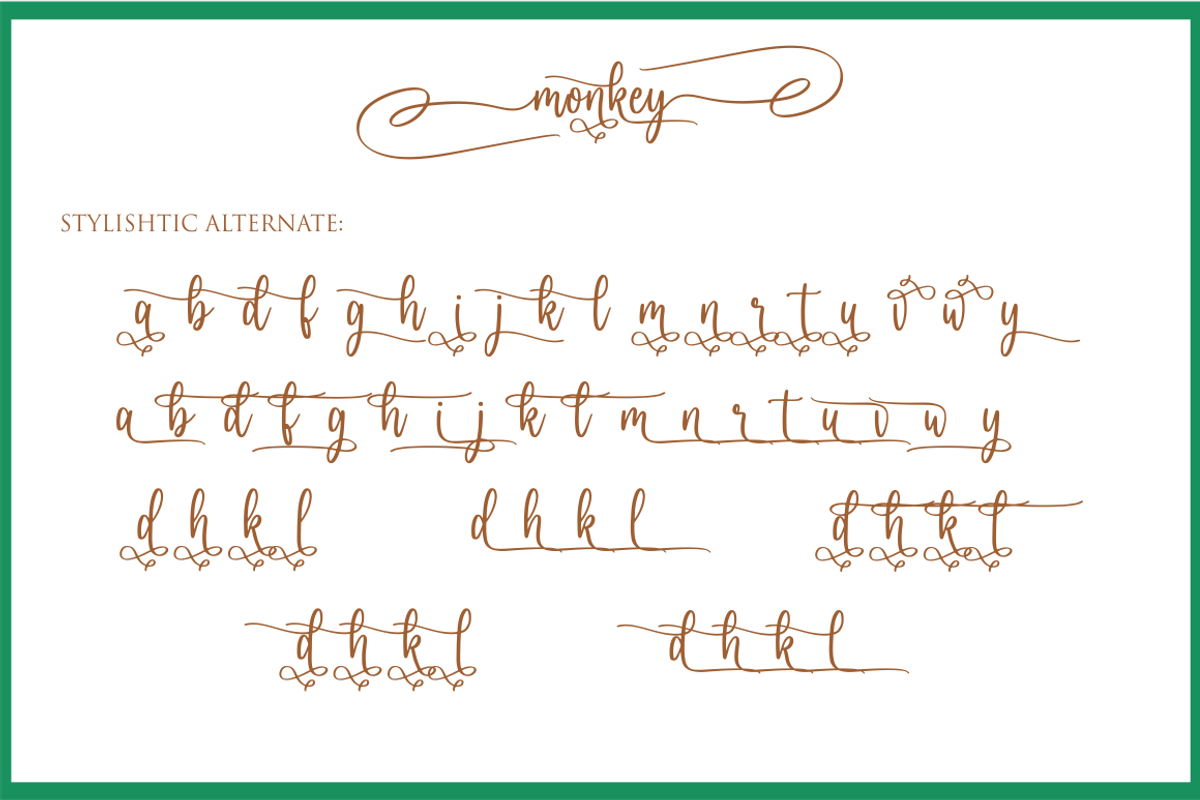 monkey
STYLISHTIC ALTERNATE:
a b d f g h i j k l m n r t u v w y
a b d f g h i j k t m n r t u v w y
d h k l d h k l d h k l
d h k l d h k l